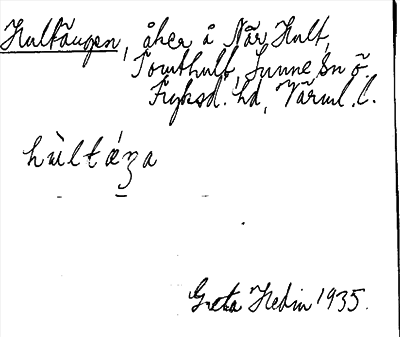 Hultängen, åker å Når Hult,
Tomthult, Sunne sn ö.
Fryksd. hd, Värml. l.
hùltǽŋa
Greta Hedin 1935.